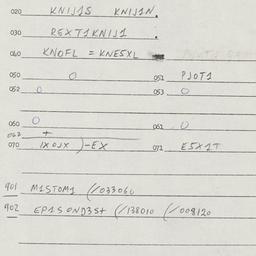 020 KNIJ1S KNIJ1N.
030 REXT1KNIJ1 .
040 KNOFL = KNE5XL
050 0 051 PJOT1
052 0 053 0
060 0 061 0
062 +
070 1XOJX )-EX 071 E5X1T
901 M1STOM1 (/033060
902 EP1SOND3S+ (/138010 (/008120